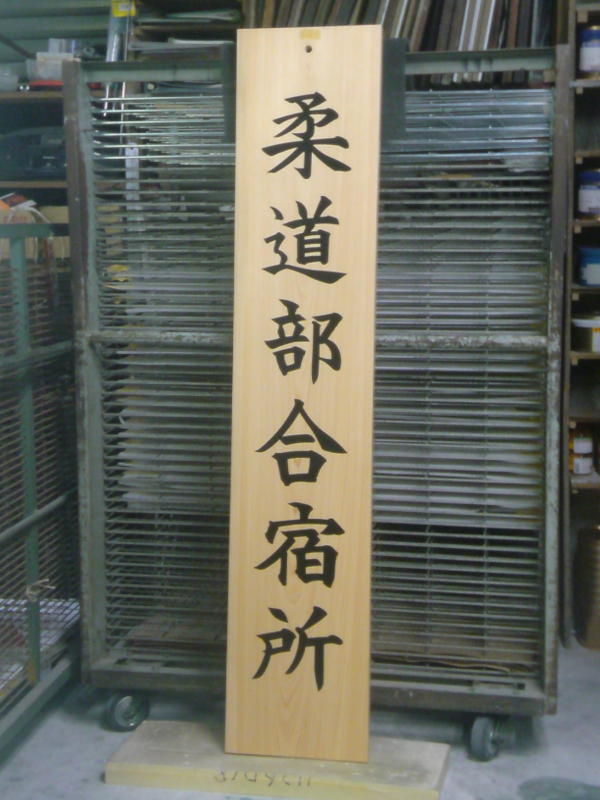 柔道部合宿所